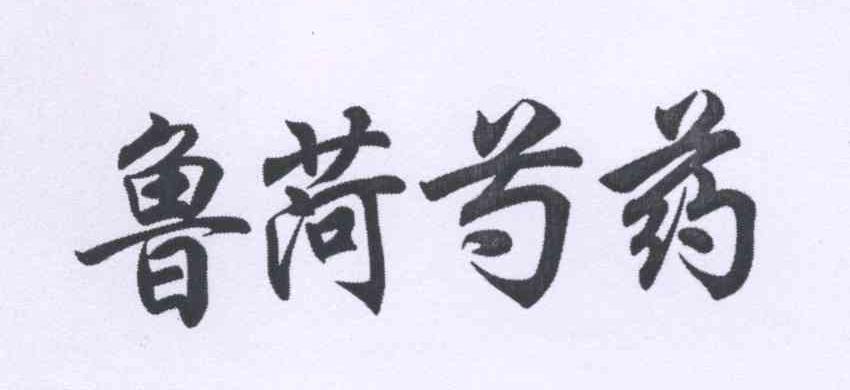 鲁菏芍药